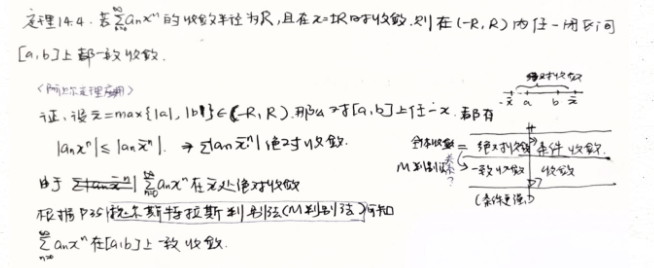 定理14.4. 若∑anxⁿ的收敛半径为R,且在x=±R时收敛.则在(-R,R)内任一闭区间
[a,b]上都一致收敛.
<阿贝尔定理应用>
证.设x̄=max{|a|,|b|}∈(-R,R).那么对[a,b]上任一x.都有
|anxⁿ|≤|anx̄ⁿ|. ⇒∑|anx̄ⁿ|绝对收敛.
由于 ∑anxⁿ在x̄处绝对收敛
根据P35|魏尔斯特拉斯判别法(M判别法)可知
∑anxⁿ在[a,b]上一致收敛.
绝对收敛
-x̄ a b x̄
绝对收敛 条件收敛.
M判别法
?
一致收敛 收敛
(条件更强)